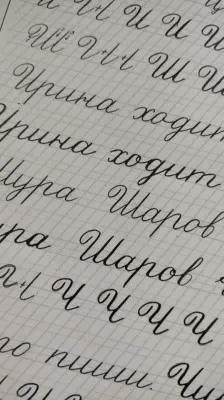 И И И И
И И Ш Ш
Ирина ходит
Ирина ходит
Шура Шаров
ура Шаров
Ч Ч Ч Ч
го пиши. Чи